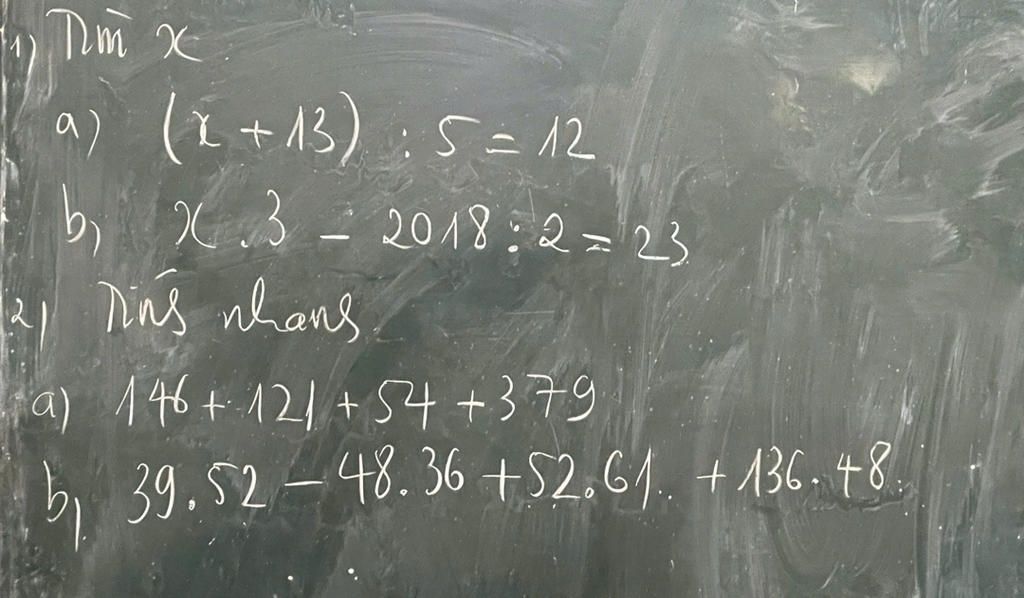 1) Tìm x
a) (x + 13) : 5 = 12
b) x . 3 - 2018 : 2 = 23
2) Tính nhanh
a) 146 + 121 + 54 + 379
b) 39.52 - 48.36 + 52.61 + 136.48